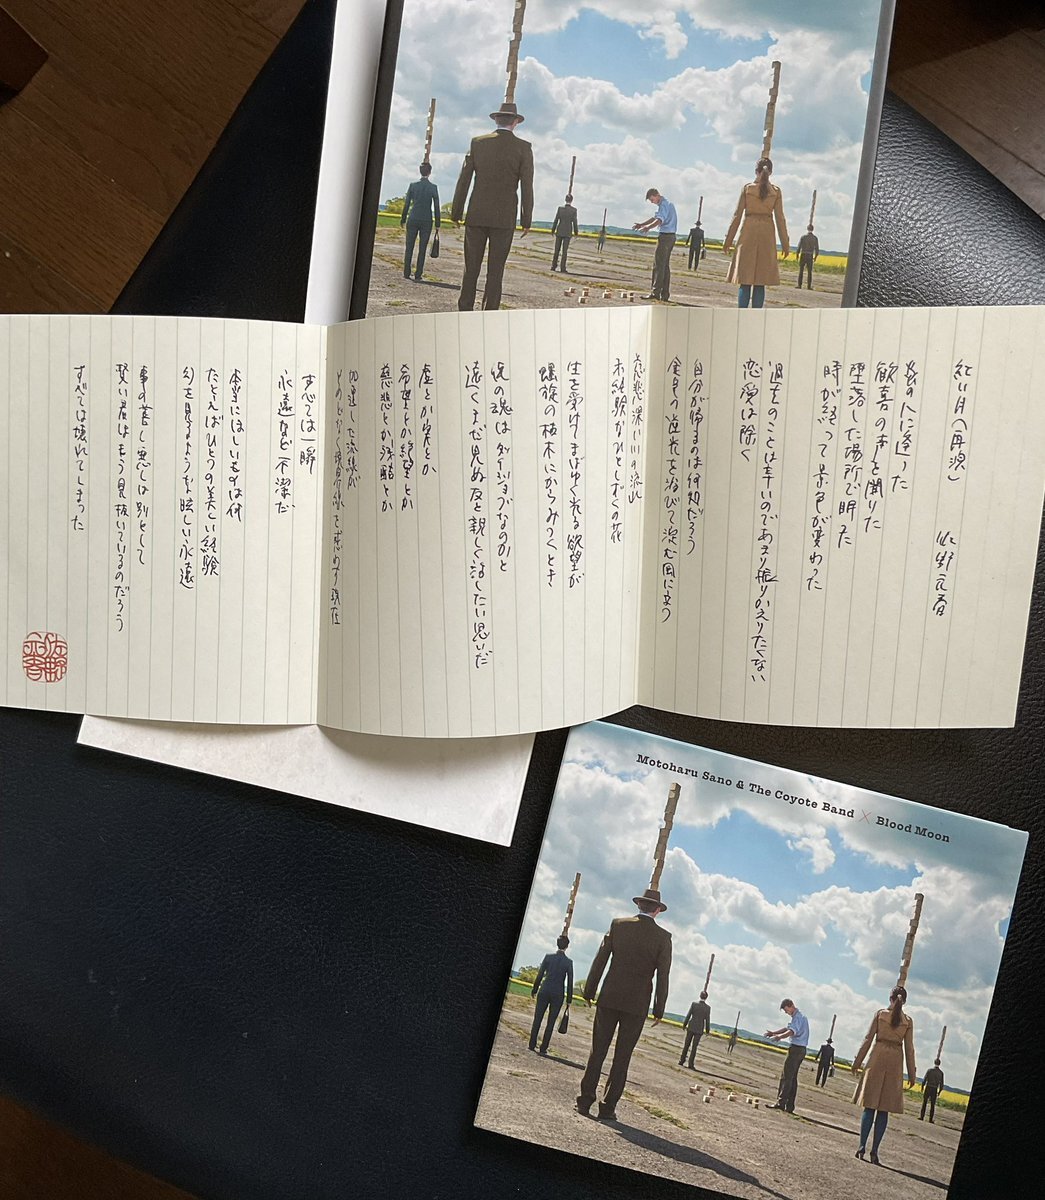 紅い月
佐野元春
多くの人に逢った
歓喜の声を聞いた
堕落した場所で眠った
時が経って景色が変わった
過去のことは辛いのであまり振りかえりたくない
恋愛は除く
自分が帰るのは何処だろう
全身の逆光を浴びて淀む風に立つ
慈悲深い川の流れ
未経験がひとしずくの花
生を受けてまばゆく光る欲望が
螺旋の枝木にからみつくとき
俺の魂はダイジョブなのかと
遠くまだ見ぬ友と親しく話したい思いだ
虚とか実とか
希望とか絶望とか
慈悲とか残酷とか
加速した流線が
とめどなく境界線を惑わす現在
すべては一瞬
永遠など不潔だ
本当にほしいものは何
たとえばひとつの美しい経験
幻を見るような眩しい永遠
事の善し悪しは別として
賢い君はもう見抜いているのだろう
すべては壊れてしまった
佐野元春
Motoharu Sano & The Coyote Band × Blood Moon